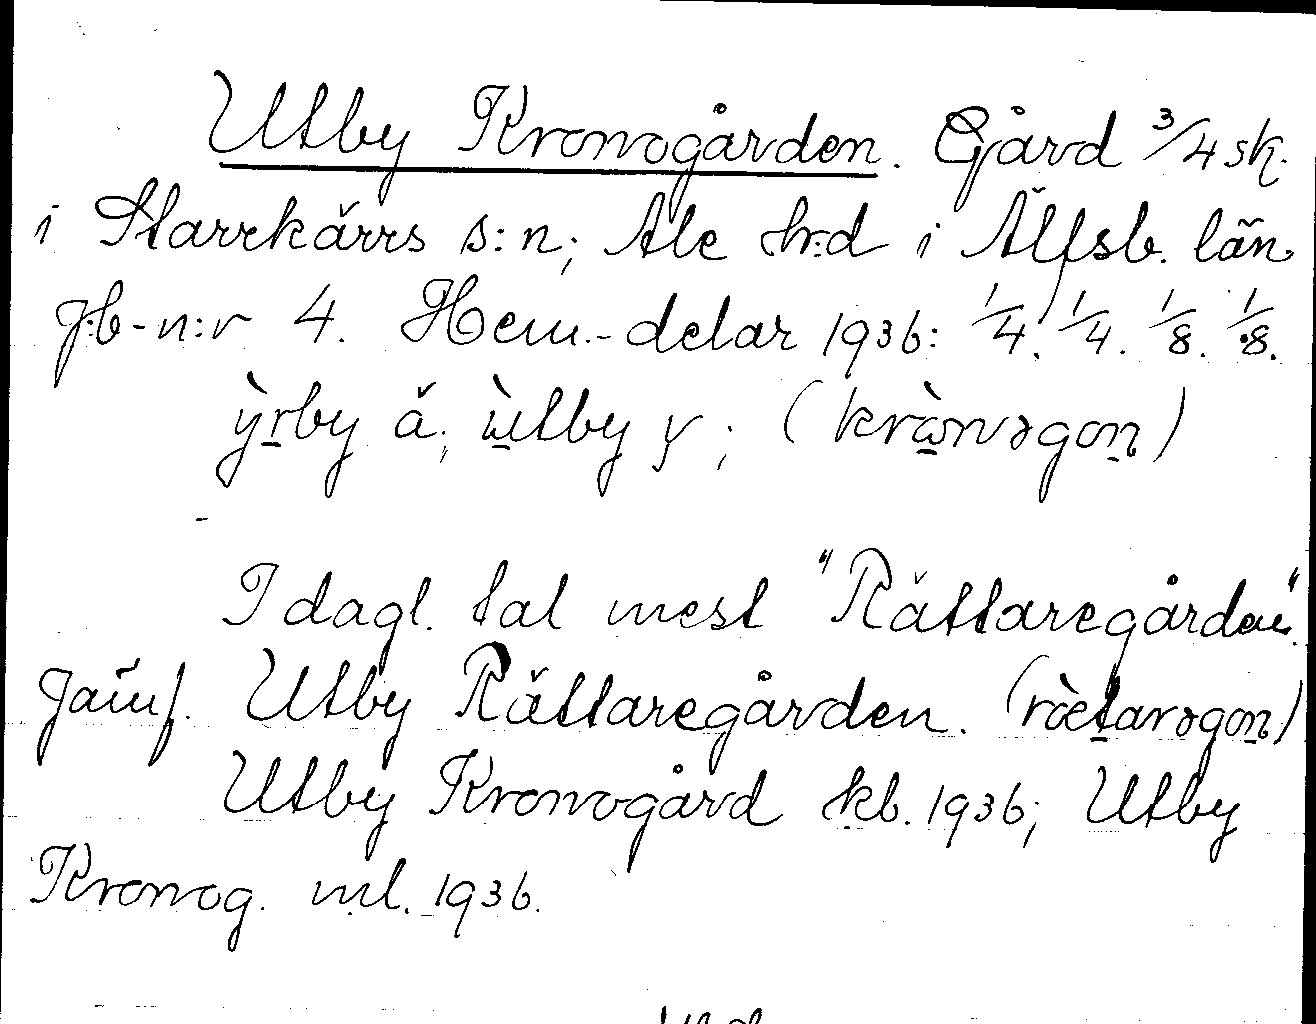 Utby Kronogården. Gård 3/4 sk.
i Starrkärrs s:n; Ale h:d i Älfsb. län
J:b-n:r 4. Hem.-delar 1936: 1/4. 1/4. 1/8. 1/8.
ỳrby ä; ùtby y; (krònəgon)
I dagl. tal mest "Rättaregården".
Jämf. Utby Rättaregården. (rætarəgon)
Utby Kronogård kb. 1936; Utby
Kronog. ml. 1936.